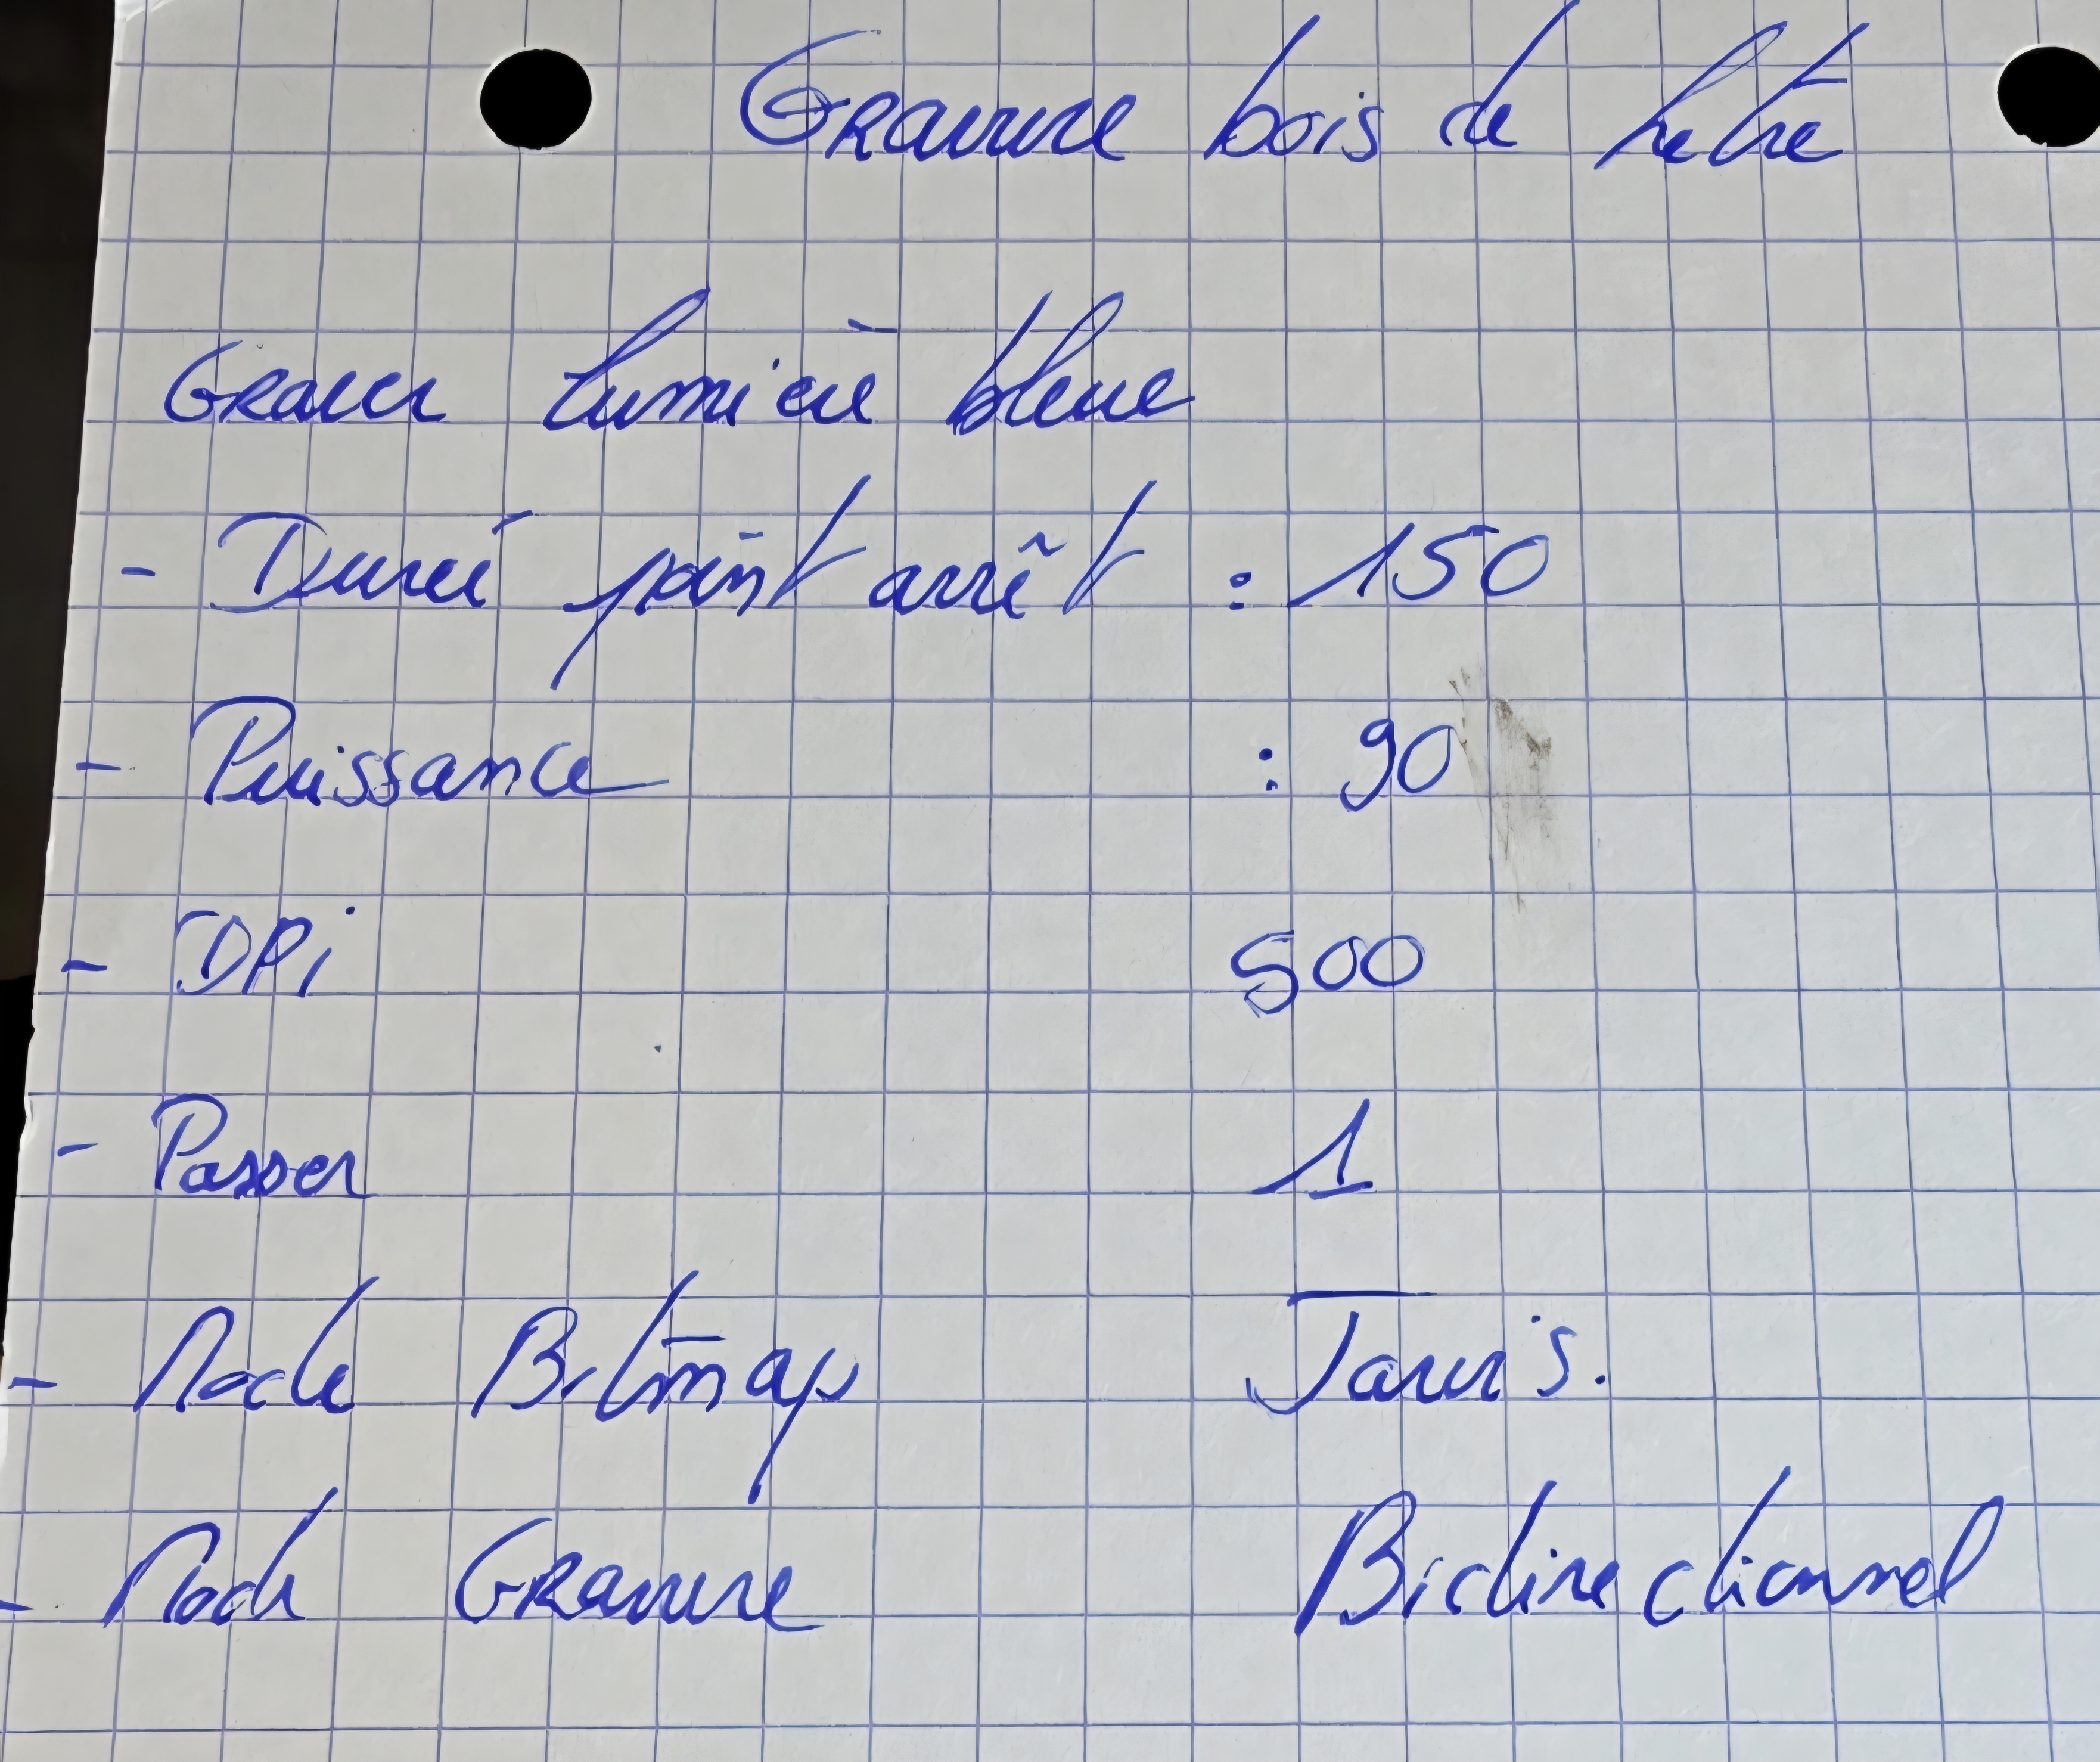 Gravure bois de hetre
Graver lumière bleue
- Dureé point arrêt : 150
- Puissance : 90
- DPi 500
- Passer 1
- Mode Bitmap Jarvis.
- Mode Gravure Bidirectionnel